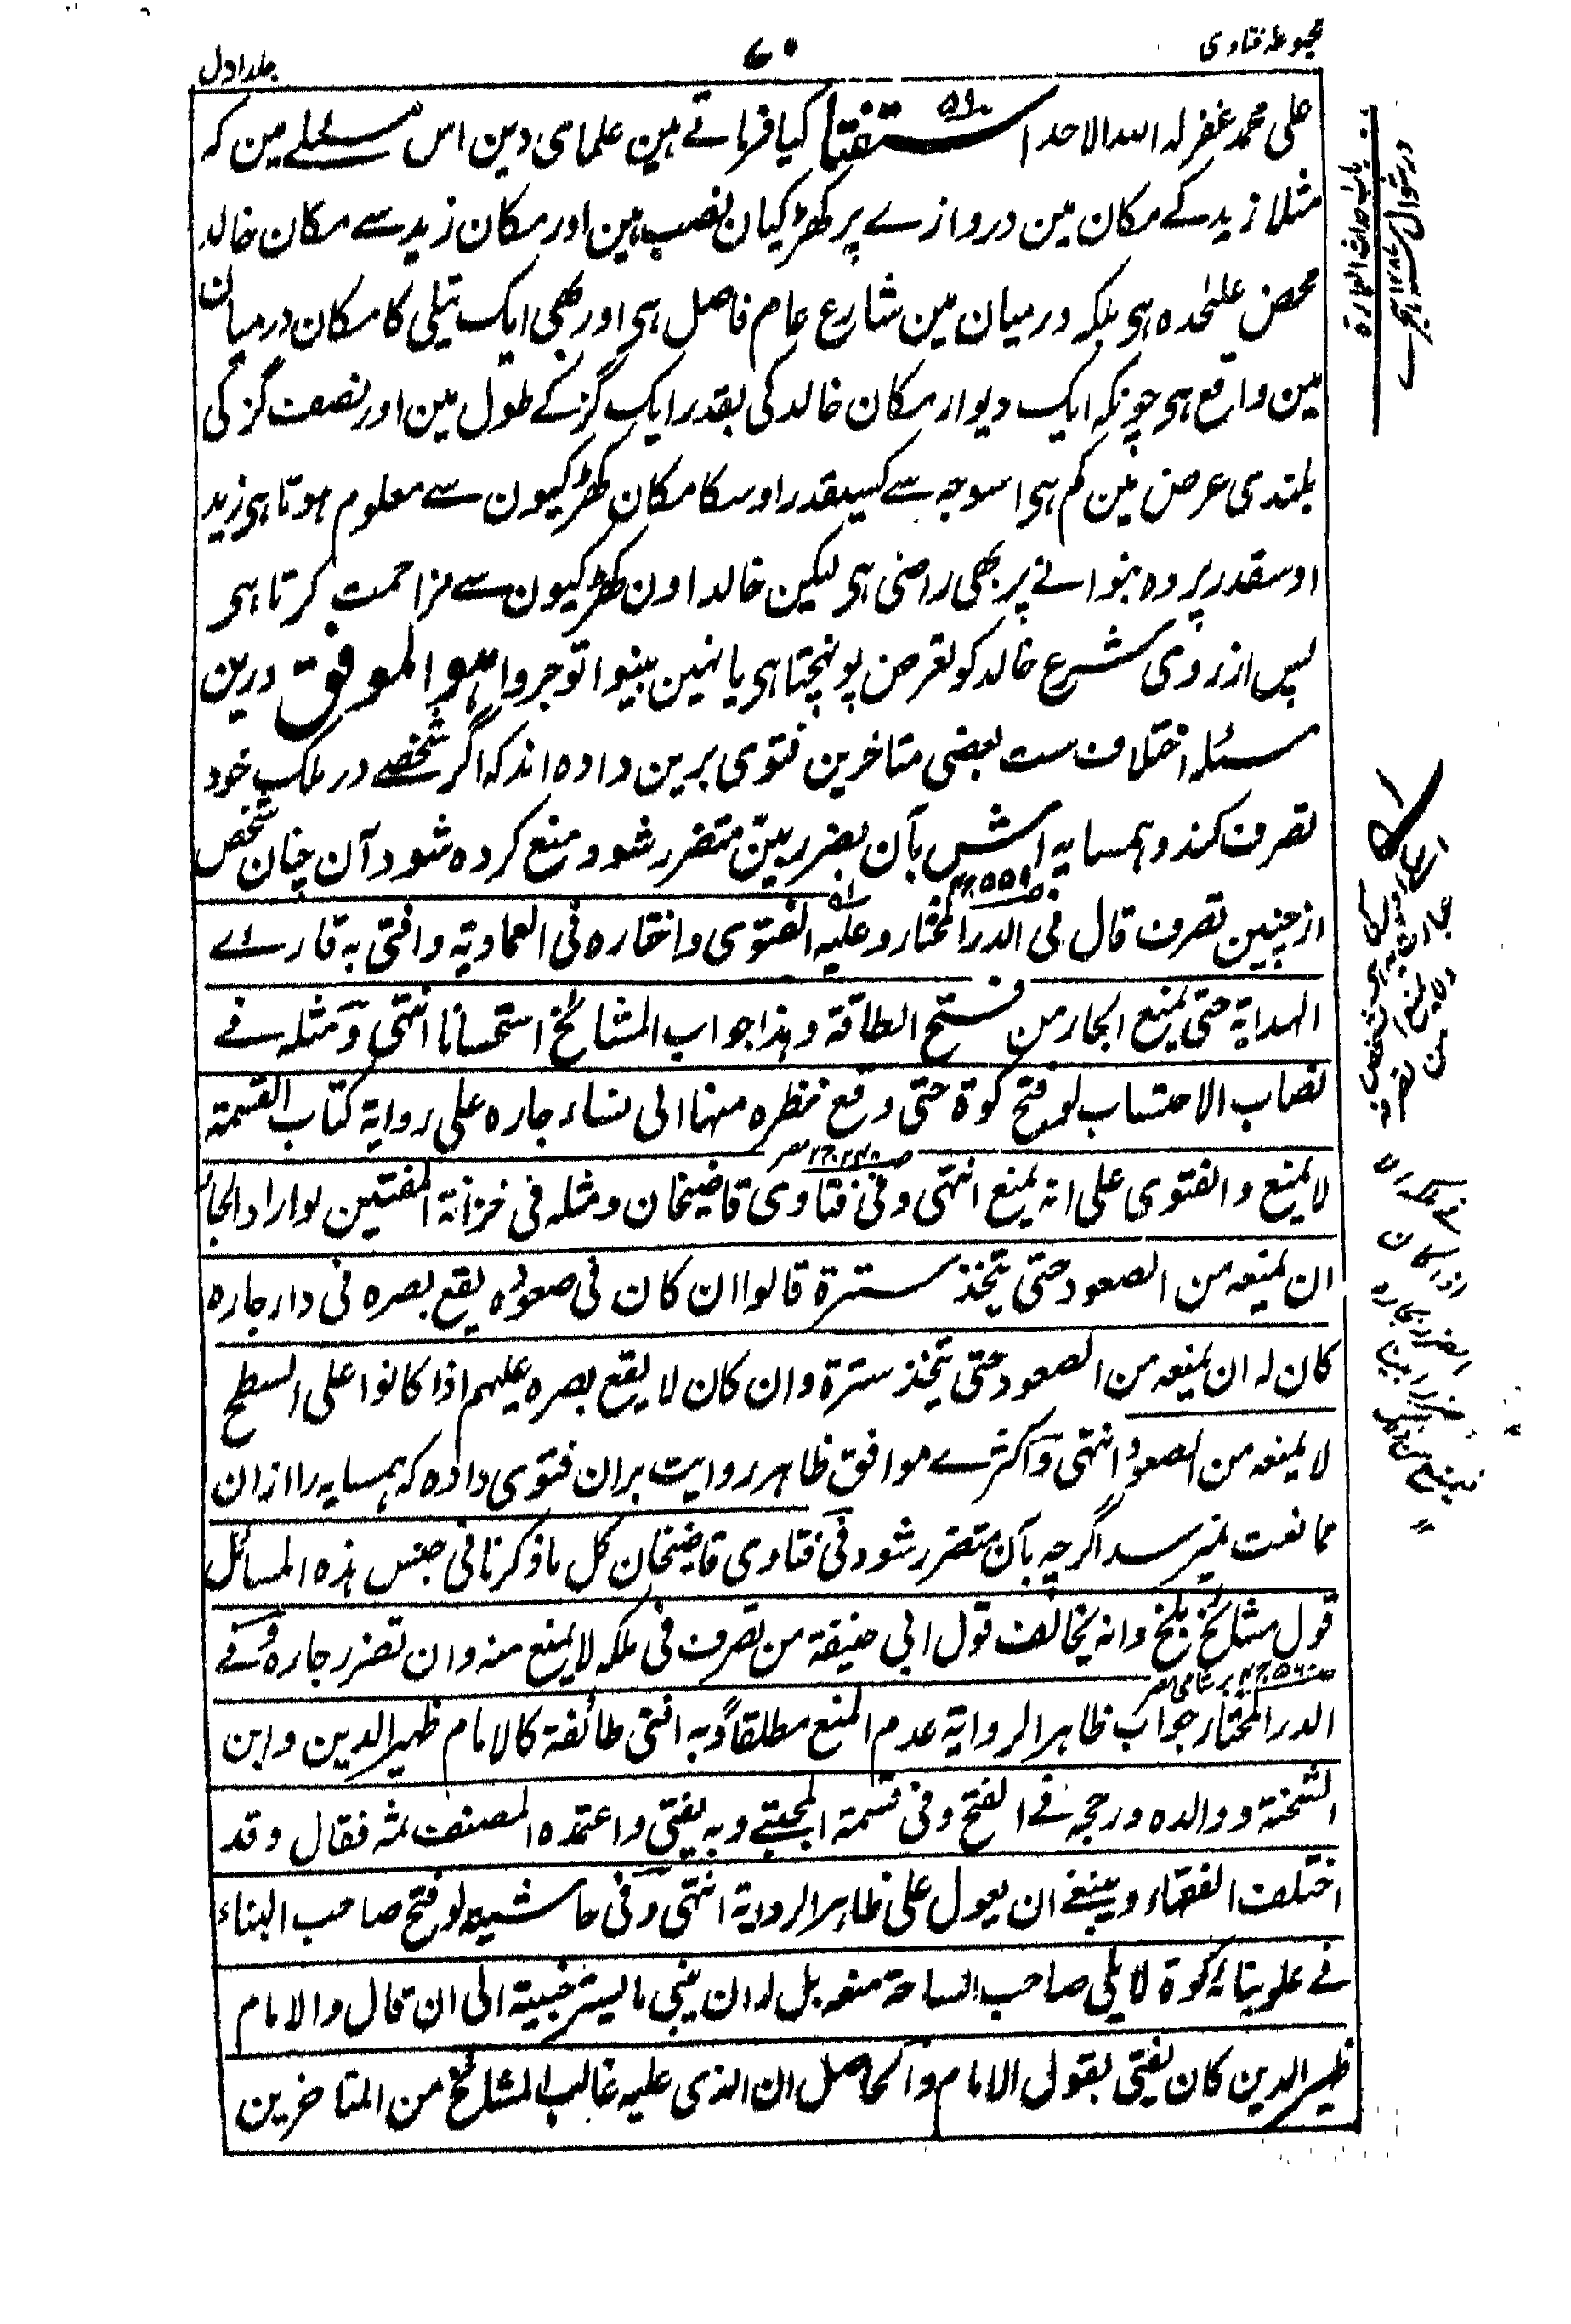 مجموعہ فتاوی
۷۰
جلد اول
علی محمد غفر لہ اللہ الاحد استفتا کیا فرماتے ہین علمای دین اس مسئلے مین کہ
مثلا زید کے مکان مین دروازے پر کھڑکیان نصب ہین اور مکان زید سے مکان خالد
محض علٰحدہ ہی بلکہ درمیان مین شارع عام فاصل ہی اور بھی ایک تیلی کا مکان درمیان
مین واقع ہی چونکہ ایک دیوار مکان خالد کی بقدر ایک گز کے طول مین اور نصف گز کی
بلندی عرض مین کم ہی اسوجہ سے کسیقدر اوسکا مکان کھڑکیون سے معلوم ہوتا ہی زید
اوسقدر پردہ بنوانے پر بھی راضی ہی لیکن خالد اون کھڑکیون سے مزاحمت کرتا ہی
پس از روی شرع خالد کو تعرض پونہچتا ہی یا نہین بینوا توجروا ہو الموفق درین
مسئلہ اختلاف ست بعضی متاخرین فتوی برین دادہ اند کہ اگر شخصے در ملک خود
تصرف کند و ہمسایہ اش بآن بضرر بیّن متضرر شود منع کردہ شود آن چنان شخص
از چنین تصرف قال فی الدر المختار وعلیہ الفتوی واختارہ فی العمادیۃ وافتی بہ قارے
الہدایۃ حتی یمنع الجار من فتح الطاقۃ وہذا جواب المشائخ استحسانا انتہی ومثلہ فے
نصاب الاحتساب لو فتح کوۃ حتی وقع نظرہ منہا الی نساء جارہ علی روایۃ کتاب القسمۃ
لا یمنع والفتوی علی انہ یمنع انتہی وفی فتاوی قاضیخان ومثلہ فی خزانۃ المفتین لو اراد الجار
ان یمنعہ من الصعود حتی یتخذ سترۃ قالوا ان کان فی صعودہ یقع بصرہ فی دار جارہ
کان لہ ان یمنعہ من الصعود حتی یتخذ سترۃ وان کان لا یقع بصرہ علیہم اذا کانوا علی السطح
لا یمنعہ من الصعود انتہی واکثرے موافق ظاہر روایت بران فتوی دادہ کہ ہمسایہ را ازان
ممانعت نمیرسد اگرچہ بآن متضرر شود فی فتاوی قاضیخان کل ما ذکرنا فی جنس ہذہ المسائل
قول مشائخ بلخ وانہ یخالف قول ابی حنیفۃ من تصرف فی ملکہ لا یمنع منہ وان تضرر جارہ وفے
الدر المختار جواب ظاہر الروایۃ عدم المنع مطلقا وبہ افتی طائفۃ کالامام ظہیر الدین وابن
الشحنۃ ووالدہ ورجحہ فے الفتح وفی قسمۃ المجتبے وبہ یفتی واعتمدہ المصنف ثمہ فقال وقد
اختلف الفقہاء وینبغے ان یعول علی ظاہر الروایۃ انتہی وفی حاشیہ لو فتح صاحب البناء
فے علو بنائہ کوۃ لا یلی صاحب الساحۃ منعہ بل لہ ان یبنی ما یستر جنبیہ الی ان قال والامام
ظہیر الدین کان یفتی بقول الامام والحاصل ان الذی علیہ غالب المشائخ من المتاخرین